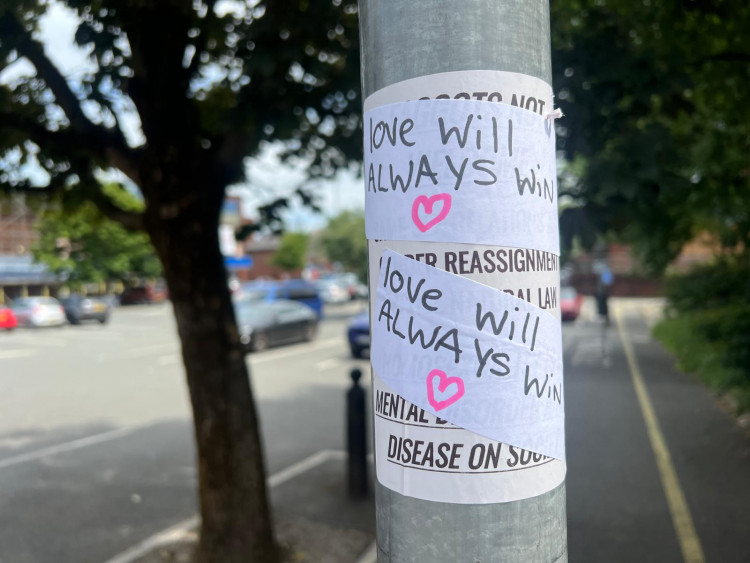 NOT
love Will
ALWAYS WiN
REASSIGNMENT
LAW
love will
ALWAYS WiN
MENTAL
DISEASE ON